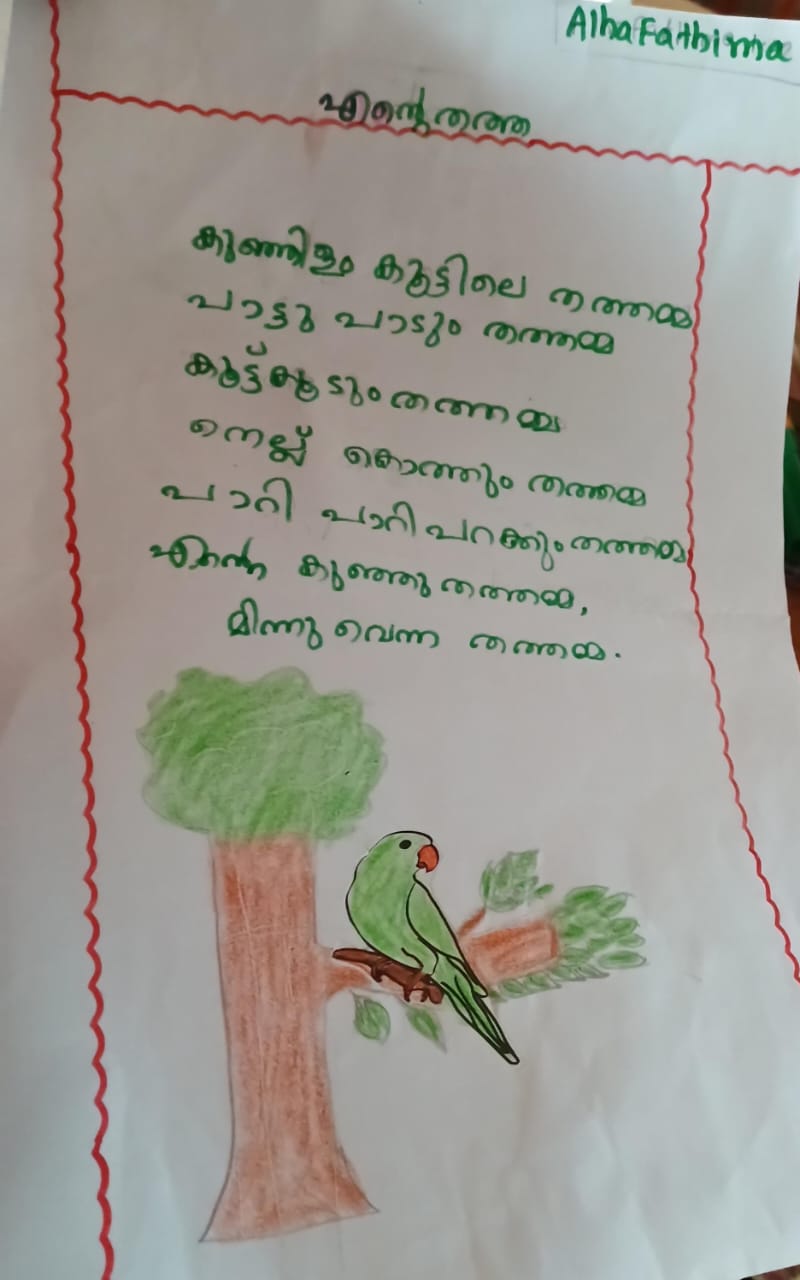 Alha Fathima
എന്റെ തത്ത
കുഞ്ഞിളം കൂട്ടിലെ തത്തമ്മ
പാട്ടു പാടും തത്തമ്മ
കൂട്ട്കൂടും തത്തമ്മ
നെല്ല് കൊത്തും തത്തമ്മ
പാറി പാറി പറക്കും തത്തമ്മ
എന്റെ കുഞ്ഞു തത്തമ്മ,
മിന്നു വെന്ന തത്തമ്മ.